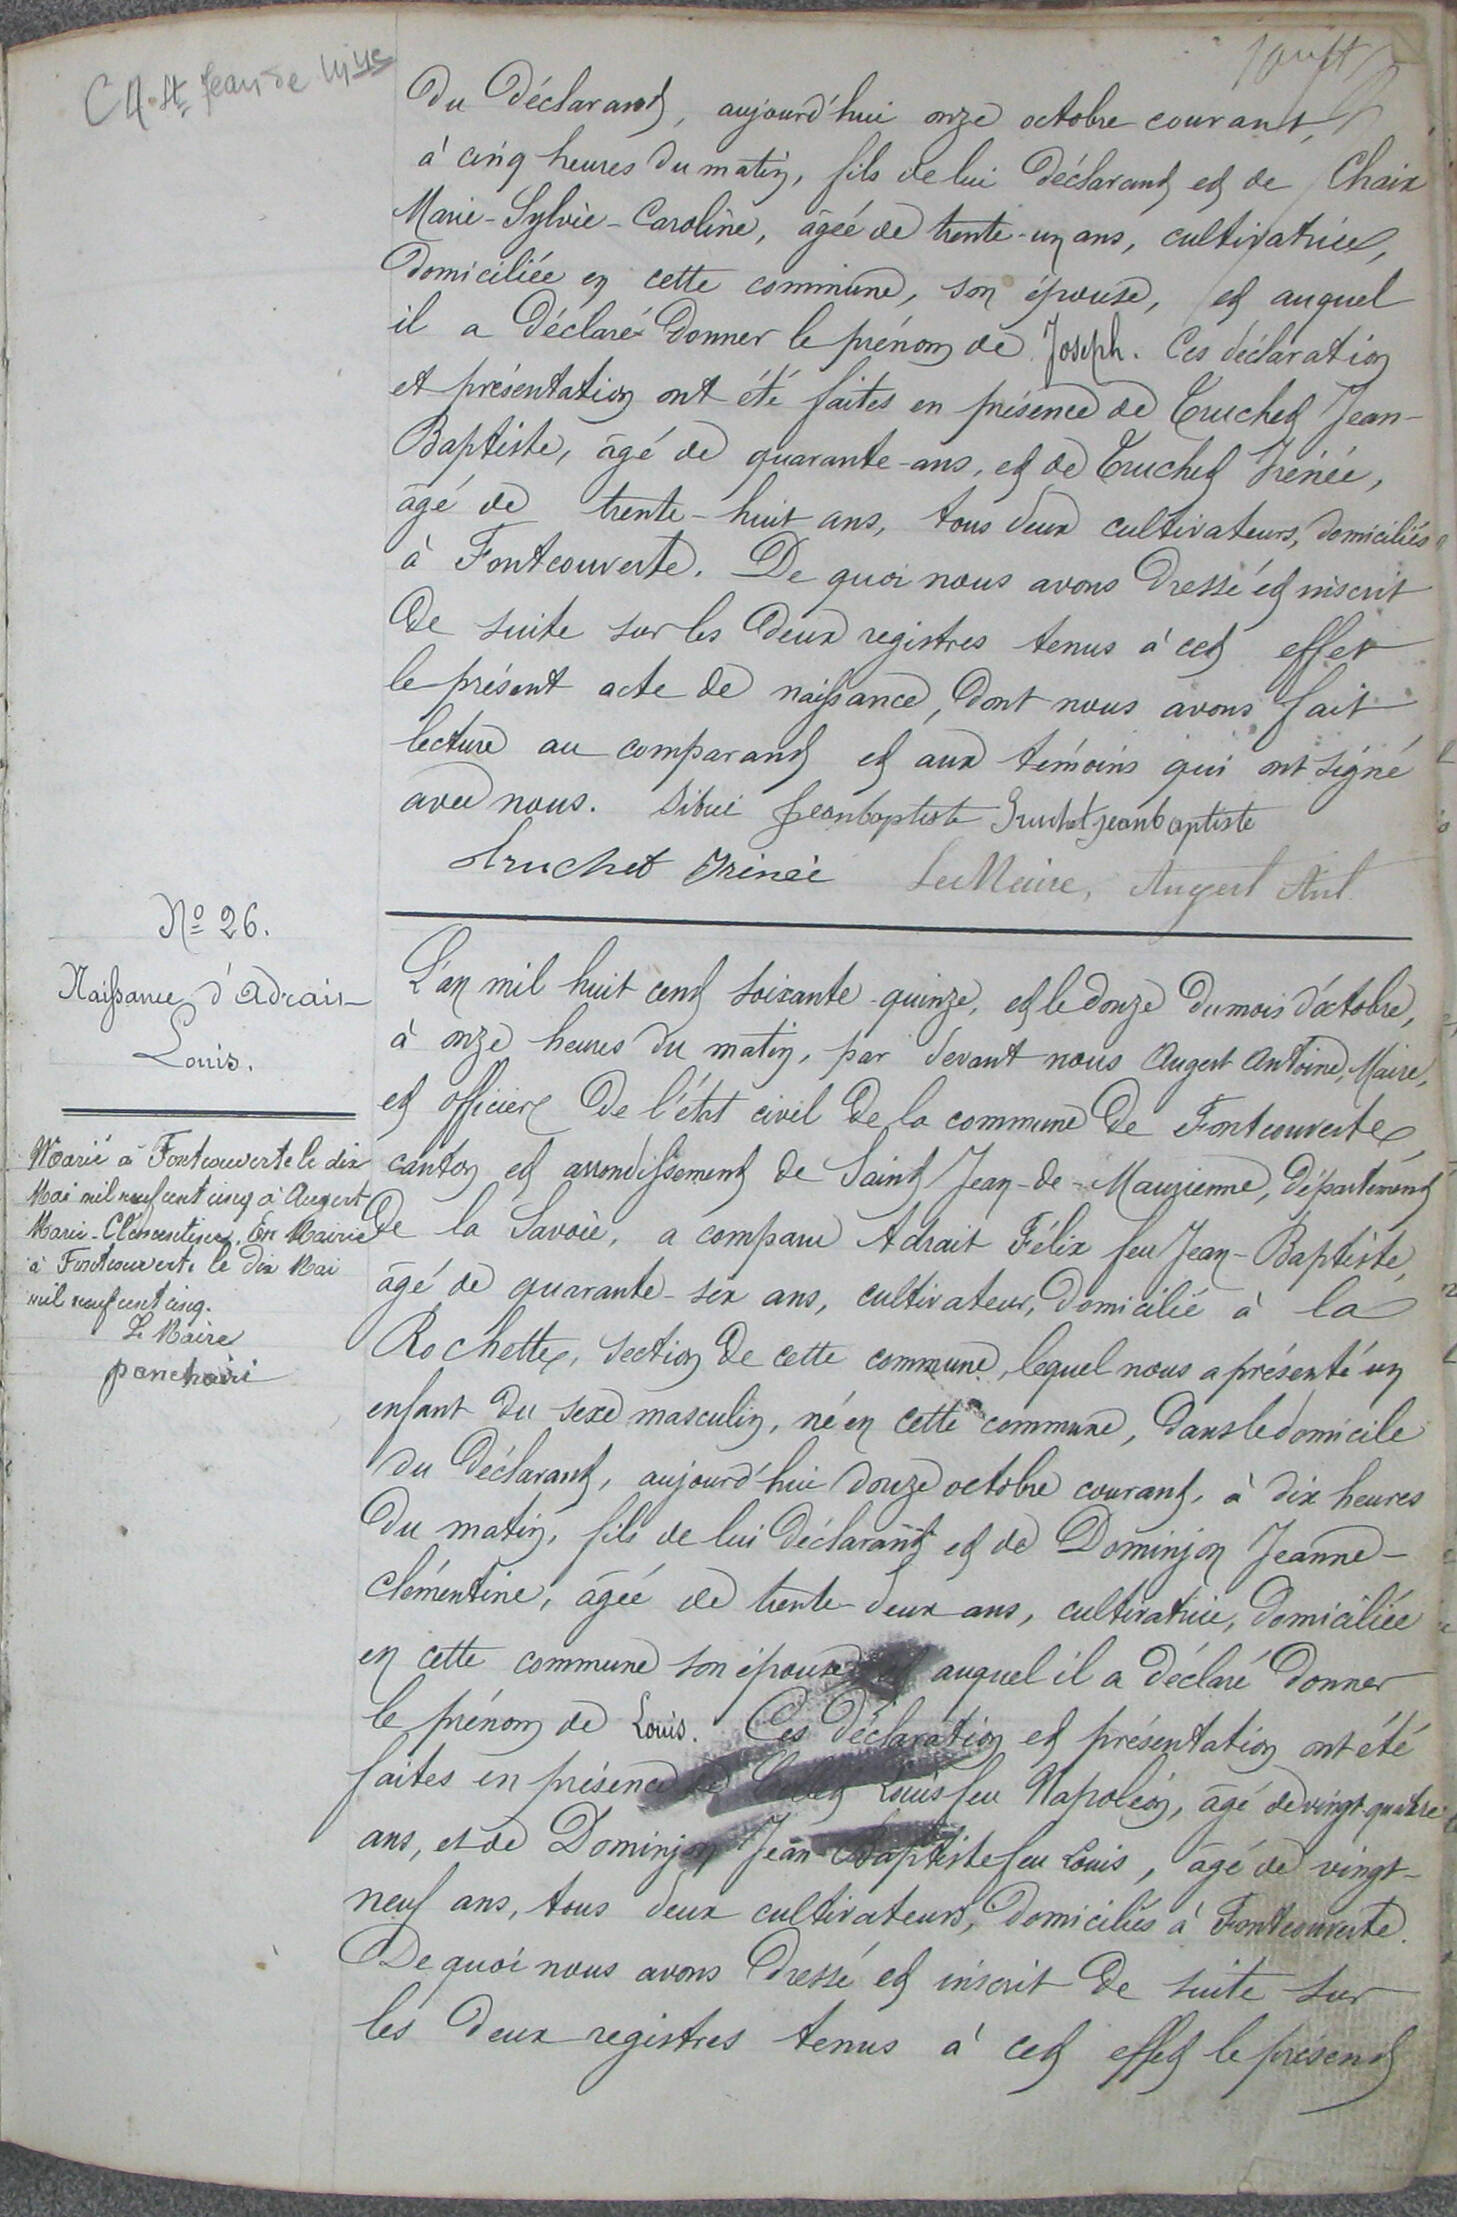 C A. St Jean de Mne
du déclarant, aujourd'hui onze octobre courant,
à cinq heures du matin, fils de lui déclarant et de Chaix
Marie-Sylvie-Caroline, âgée de trente-un ans, cultivatrice,
domiciliée en cette commune, son épouse, et auquel
il a déclaré donner le prénom de Joseph. Ces déclaration
et présentation ont été faites en présence de Truchet Jean-
Baptiste, âgé de quarante-ans, et de Truchet Irénée,
âgé de trente-huit ans, tous deux cultivateurs, domiciliés
à Fontcouverte. De quoi nous avons dressé et inscrit
de suite sur les deux registres tenus à cet effet
le présent acte de naissance, dont nous avons fait
lecture au comparant et aux témoins qui ont signé
avec nous. Sibué Jeanbaptiste Truchet jeanbaptiste
truchet Irénée Le Maire, Augert Ant.
No 26.
Naissance d'Adrait
Louis.
Marié à Fontcouverte le dix
Mai mil neuf cent cinq à Augert
Marie-Clémentine. En Mairie
à Fontcouverte le dix Mai
mil neuf cent cinq.
Le Maire
L'an mil huit cent soixante-quinze, et le douze du mois d'octobre,
à onze heures du matin, par devant nous Augert Antoine, Maire,
et officier de l'état civil de la commune de Fontcouverte,
canton et arrondissement de Saint Jean-de-Maurienne, département
de la Savoie, a comparu Adrait Félix feu Jean-Baptiste,
âgé de quarante-six ans, cultivateur, domicilié à la
Rochette, section de cette commune, lequel nous a présenté un
enfant du sexe masculin, né en cette commune, dans le domicile
du déclarant, aujourd'hui douze octobre courant, à dix heures
du matin, fils de lui déclarant et de Dominjon Jeanne-
Clémentine, âgée de trente-deux ans, cultivatrice, domiciliée
en cette commune son épouse et auquel il a déclaré donner
le prénom de Louis. Ces déclaration et présentation ont été
faites en présence de Louis feu Napoléon, âgé de vingt-quatre
ans, et de Dominjon Jean-Baptiste feu Louis, âgé de vingt-
neuf ans, tous deux cultivateurs, domiciliés à Fontcouverte.
De quoi nous avons dressé et inscrit de suite sur
les deux registres tenus à cet effet le présent